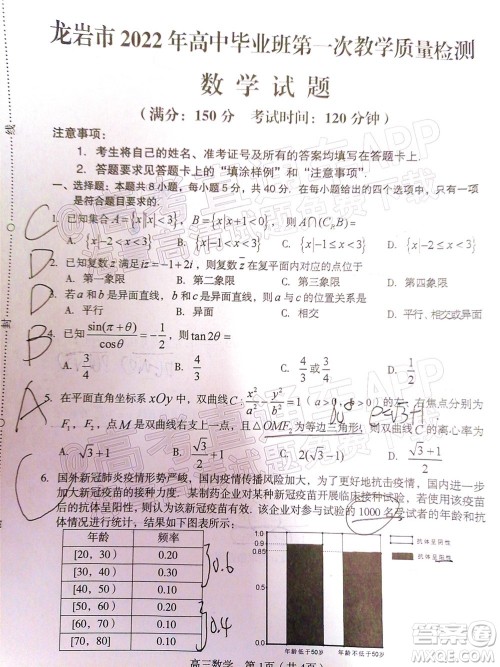 龙岩市 2022 年高中毕业班第一次教学质量检测
数 学 试 题
（满分：150 分　考试时间：120 分钟）
注意事项：
1. 考生将自己的姓名、准考证号及所有的答案均填写在答题卡上．
2. 答题要求见答题卡上的“填涂样例”和“注意事项”．
一、选择题：本题共 8 小题，每小题 5 分，共 40 分．在每小题给出的四个选项中，只有一项是
符合题目要求的．
C
1. 已知集合 A={x||x|<3}，B={x|x+1<0}，则 A∩(C_R B)=
A. {x|-1<x<3}　B. {x|-1≤x<3}　C. {x|-1≤x<3}　D. {x|-2≤x<3}
D
2. 已知复数 z 满足 iz=-1+2i，则复数 z 在复平面内对应的点位于
A. 第一象限　B. 第二象限　C. 第三象限　D. 第四象限
D
3. 若 a 和 b 是异面直线，b 和 c 是异面直线，则 a 与 c 的位置关系是
A. 平行　B. 异面　C. 异面或平行　D. 平行、相交或异面
B
4. 已知 sin(π+θ)/cosθ=-1/2，则 tan2θ=
A. 3/4　B. 4/3　C. √3/3　D. √3
A
5. 在平面直角坐标系 xOy 中，双曲线 C: x²/a²-y²/b²=1（a>0，b>0）的左、右焦点分别为
F₁，F₂，点 M 是双曲线右支上一点，△OMF₂ 为等边三角形，则双曲线 C 的离心率为
e=√3+1
A. √3+1　B. √3/2+1　C. √3　D. 2√3
C
6. 国外新冠肺炎疫情形势严峻，国内疫情传播风险加大，为了更好地抗击疫情，国内进一步
加大新冠疫苗的接种力度．某制药企业对某种新冠疫苗开展临床接种试验，若使用该疫苗
后的抗体呈阳性，则认为该新冠疫苗有效．该企业对参与试验的 1000 名受试者的年龄和抗
体情况进行统计，结果如下图表所示：
年龄　频率
[20，30）　0.20
[30，40）　0.30
[40，50）　0.10
[50，60）　0.20
[60，70）　0.10
[70，80]　0.10
0.6
0.4
1.0
0.9
0.85
0
年龄低于50岁　年龄不低于50岁
抗体呈阴性
抗体呈阳性
高三数学　第 1 页（共 4 页）
线
封